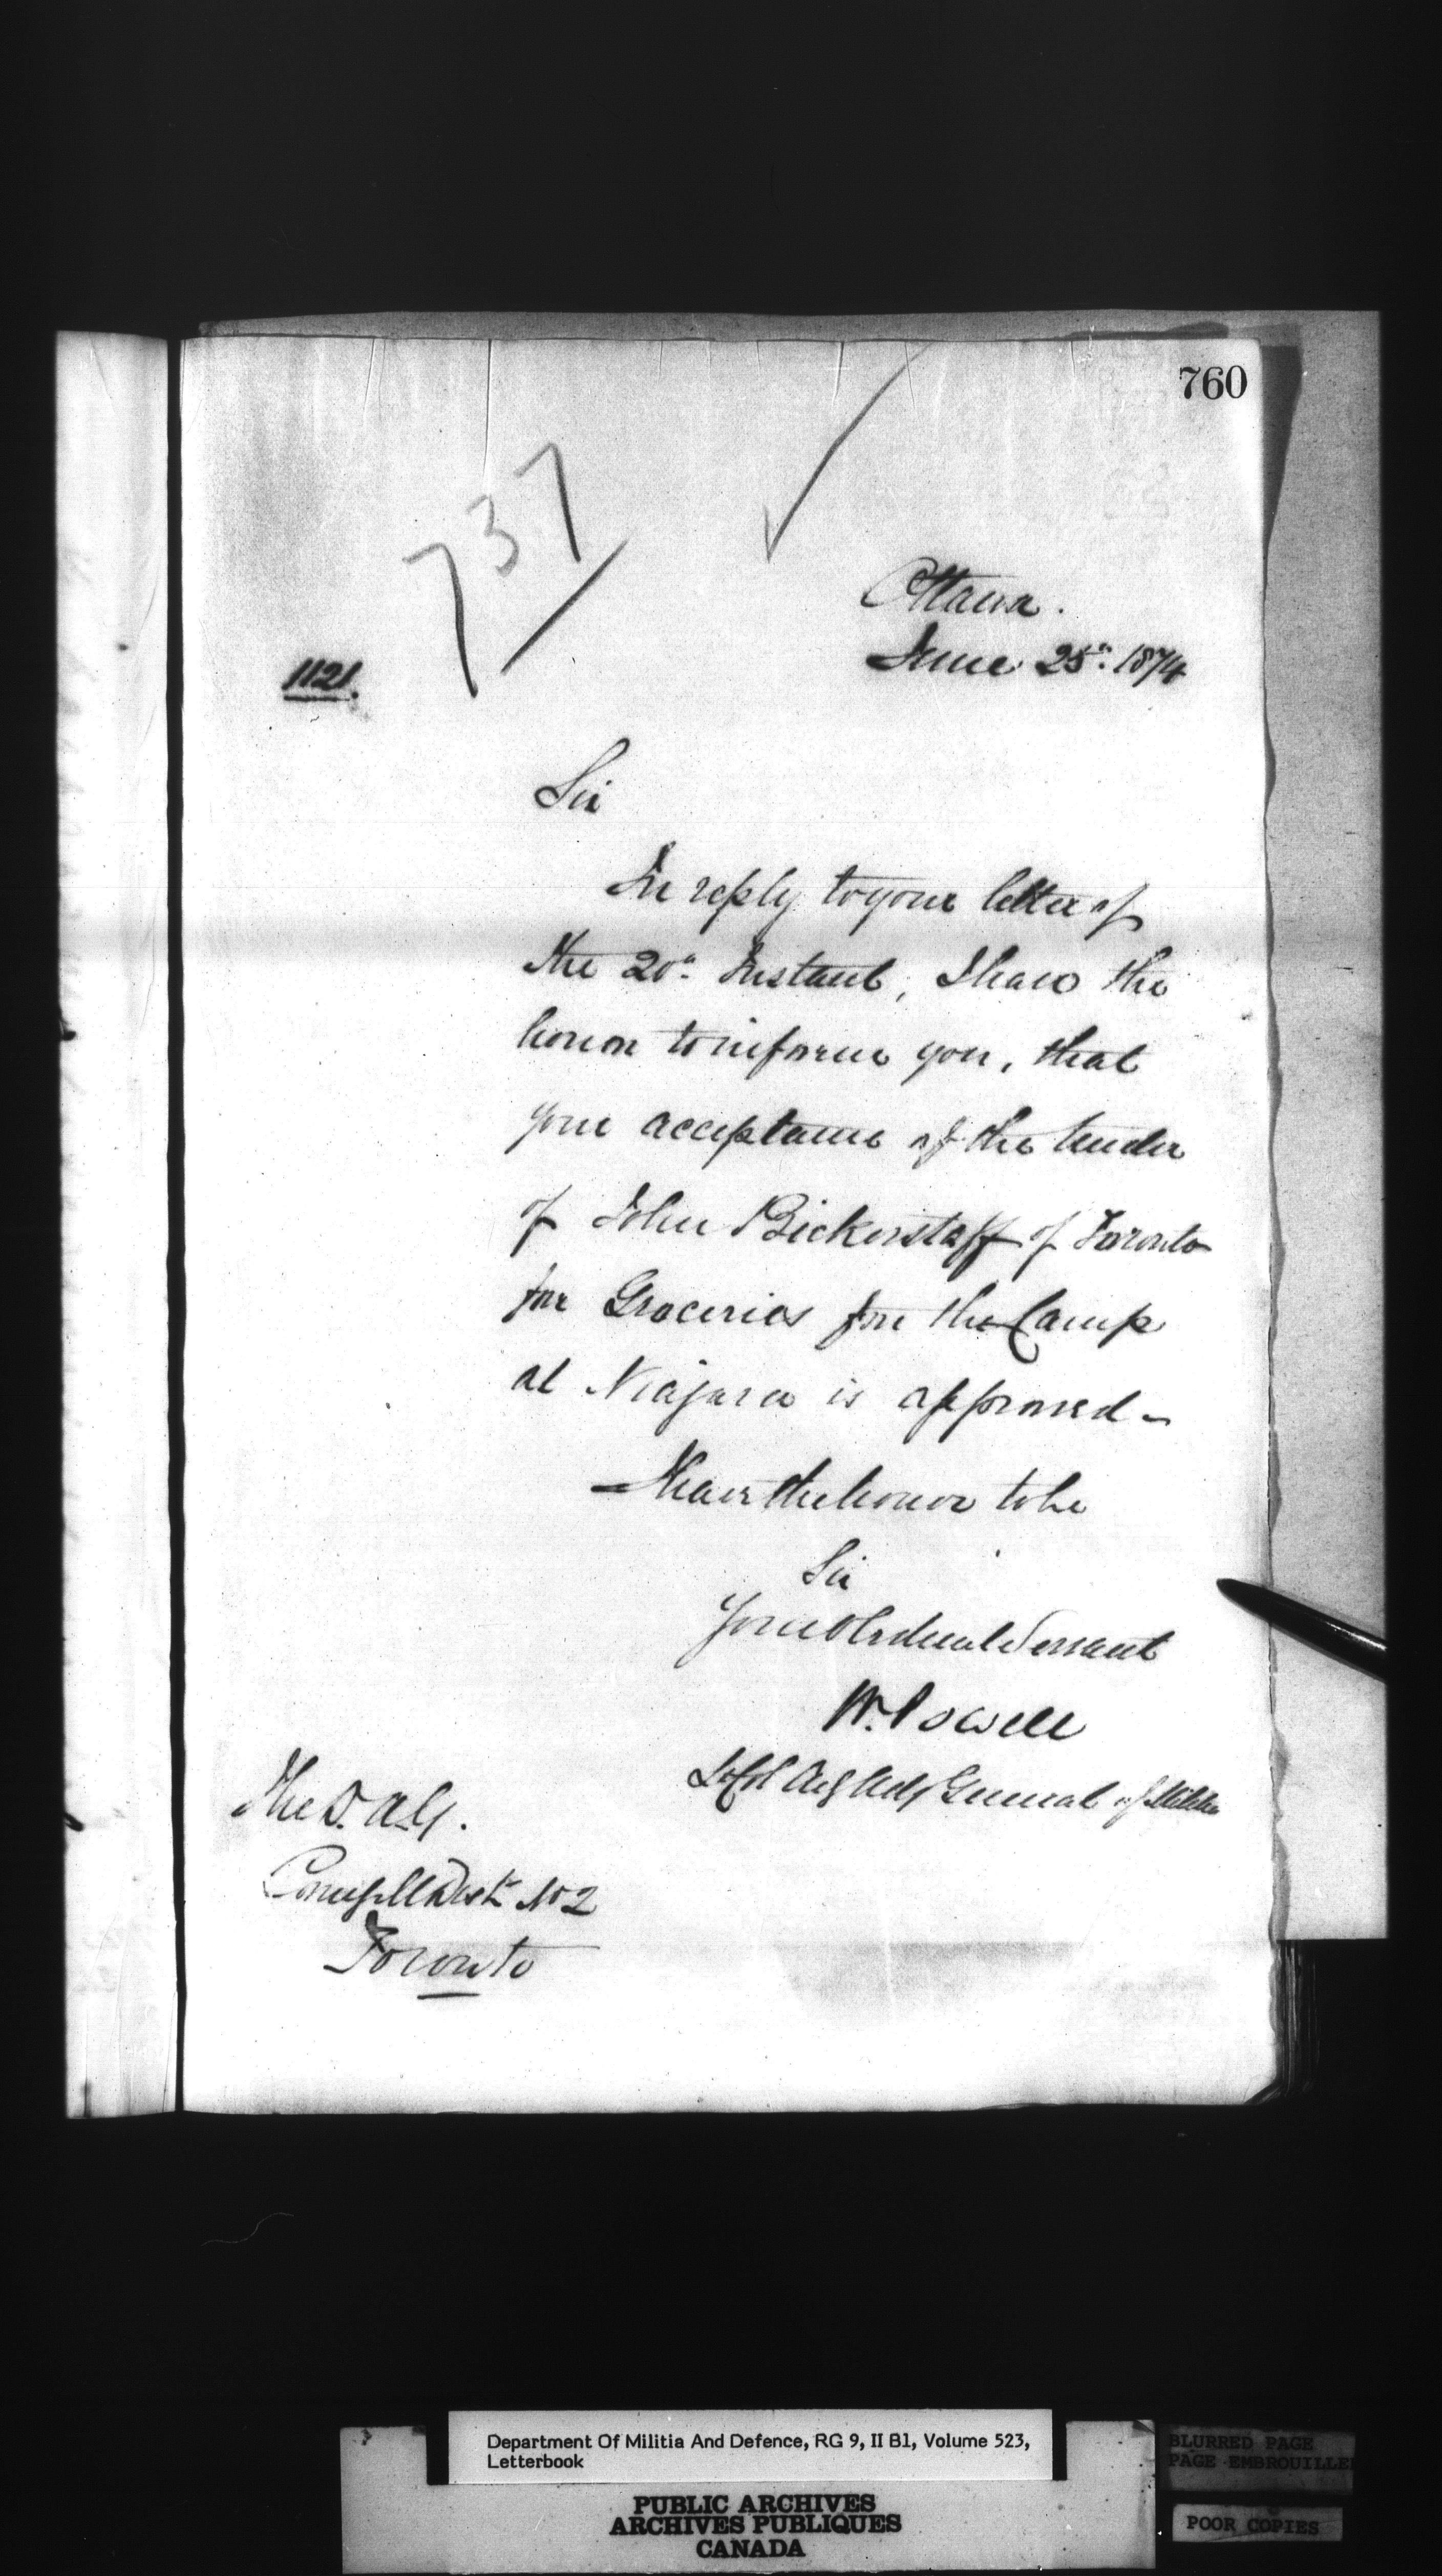 760
737
Ottawa.
June 25th. 1874
1121.
Sir
In reply to your letter of
the 20th Instant, I have the
honor to inform you, that
your acceptance of the tender
of John Bickerstaff of Toronto
for Groceries for the Camp
at Niagara is approved –
I have the honor to be
Sir
Your Obedient Servant
W. Powell
Lt Col Actg Adjt General of Militia
The D. A. G.
Comg. M Dist No 2
Toronto
Department Of Militia And Defence, RG 9, II B1, Volume 523,
Letterbook
PUBLIC ARCHIVES
ARCHIVES PUBLIQUES
CANADA
BLURRED PAGE
PAGE EMBROUILLEE
POOR COPIES